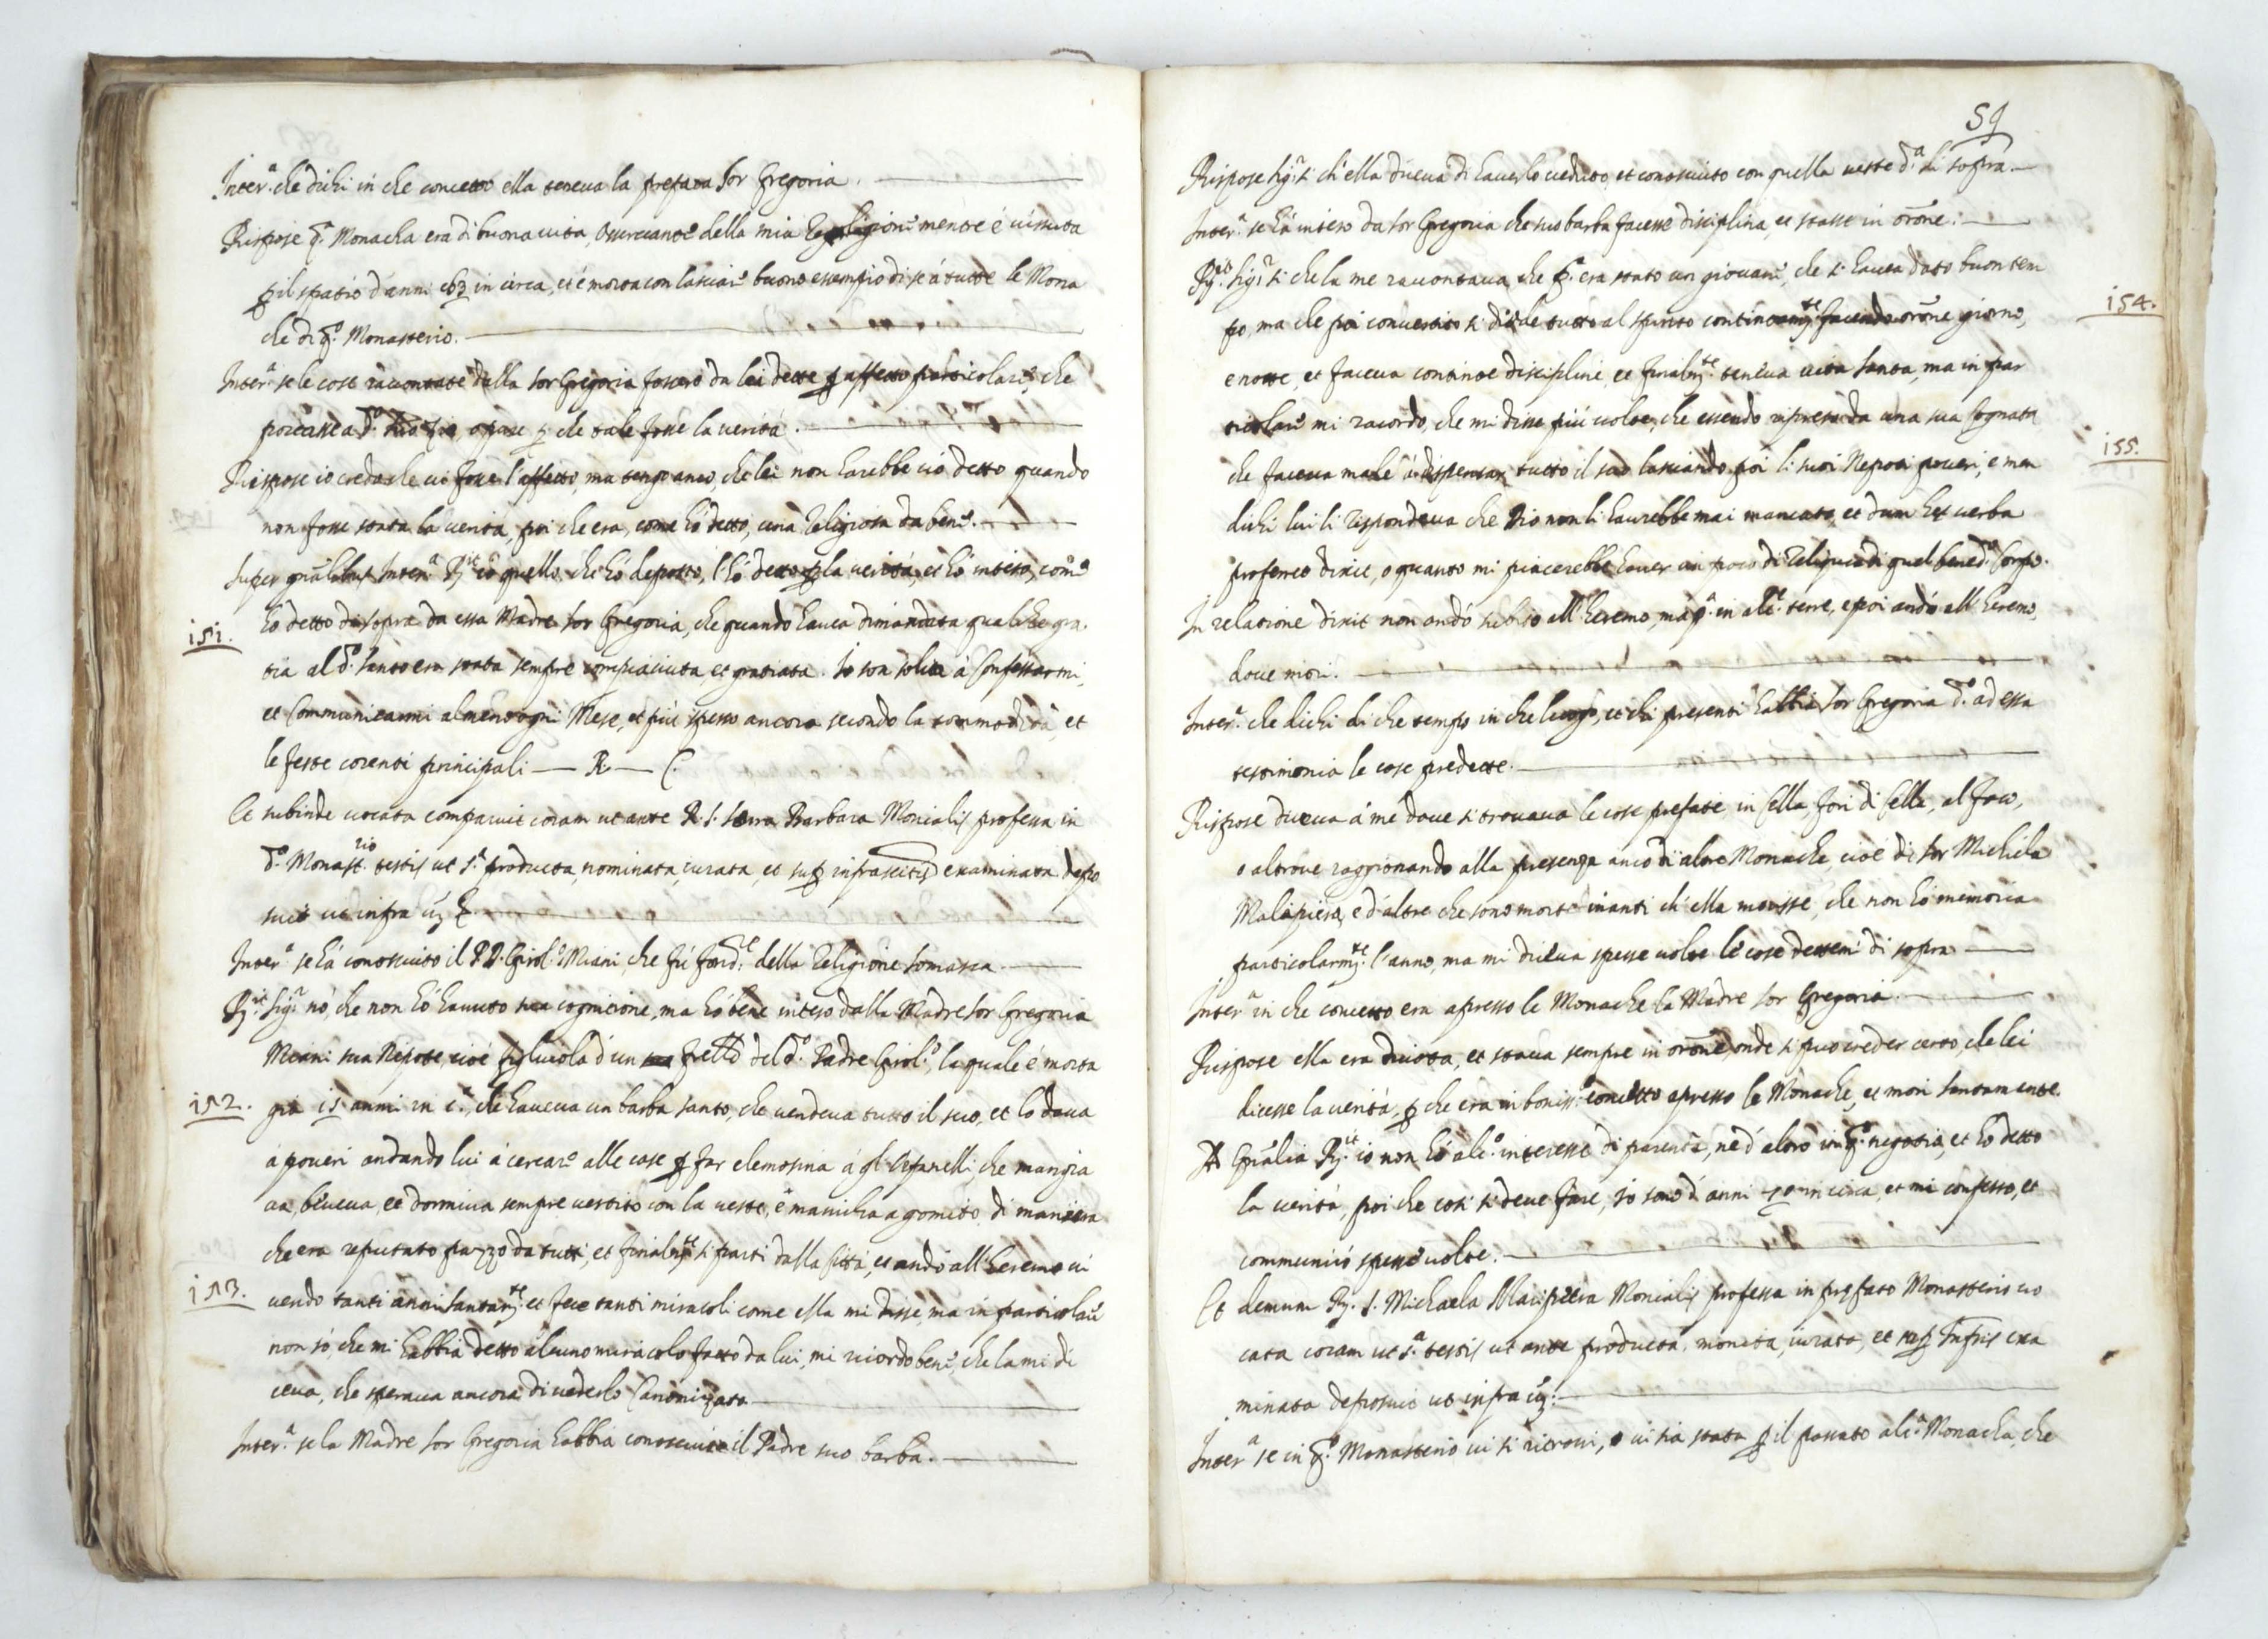 Inter.ª che dichi in che concetto ella teneva la prefata Sor Gregoria.
Rispose q.ª Monacha era di buona vita, osservante della mia Religione mentre é vissuta
p il spatio d'anni in circa, et é morta con lasciar buono essempio di se á tutte le Mona
che di q.º Monasterio.
Inter.ª se le cose racontate dalla Sor Gregoria fossero da lei dette p affetto particolare, che
portasse a d.º suo Zio, o pure p che tale fosse la verità.
Rispose io credo che vi fosse l'affetto, ma tengo anco, che lei non harebbe ció detto quando
non fosse stata la verità, poi che era, come hó detto, una Religiosa da bene.
Super gnãlibus Inter.ª R.it io quello, che hó deposto, l'hó detto p la verità, et hó inteso, come
151.
hó detto di sopra da essa Madre Sor Gregoria, che quando havea dimandata qualche gra
tia al d.º Santo era stata sempre compiaciuta, et gratiata. Io son solita á Confessarmi,
et Communicarmi almeno ogni Mese, et piú spesso ancora secondo la commodità, et
le feste corenti principali — R. — C.
Et subinde vocata comparuit coram ut ante R. S. Serra Barbara Monialis professa in
d.º Monast.rio testis ut s.ª producta, nominata, iurata, et sup infrascriptis examinata depo
suit ut infra uz
Inter.ª se há conosciuto il P. D. Girol.º Miani, che fú fond.re della Religione Somasca.
R.it Sig.r nò, che non hó havuto sua cognicione, ma hó bene inteso dalla Madre Sor Gregoria
Miani sua Nipote, cioé figliuola d'un fratello del d.º Padre Girol.º, la quale é morta
152.
giá 15 anni in c.ª, che haveva un barba santo, che vendeva tutto il suo, et lo dava
á poveri andando lui á cercare alle case p far elemosina á gl'Orfanelli, che mangia
va, beveva, et dormiva sempre vestito con la veste, e manicha a gomito, di maniera
che era reputato pazzo da tutti, et finalm.te si partì dalla Cittá, et andó all'heremo vi
153.
vendo tanti anni santam.te et fece tanti miracoli come ella mi disse, ma in particolare
non só, che mi habbia detto alcuno miracolo fatto da lui, mi ricordo bene, che la mi di
ceva, che sperava ancora di vederlo Canonizato
Inter.ª se la Madre Sor Gregoria habbia conosciuto il Padre suo barba.
59
Rispose Sig.r si ch'ella diceva di haverlo veduto, et conosciuto con quella veste d.ª di sopra.
Inter.ª se há inteso da Sor Gregoria che suo barba facesse disciplina, et stasse in orõne.
R.it Sig.r si che la me racontava, che p.ª era stato un giovane, che si havea dato buon tem
154.
po, ma che poi convertito si diede tutto al spirito continoam.te facendo orõne giorno,
e notte, et faceva continoe discipline, et finalm.te teneva vita santa, ma in par
ticolare mi racordo, che mi disse piú volte, che essendo ripreso da una sua Cognata
155.
che faceva male á dispensar tutto il suo lasciando poi li suoi Nepoti poveri, e men
dichi lui li rispondeva che Dio non li havrebbe mai mancato, et dum hec verba
proferreo dixit, o quanto mi piacerebbe haver un poco di Reliquie di quel bened.º Corpo.
In relatione dixit non andó subito all'heremo, má p.ª in alt.e terre, e poi andó all'heremo,
dove morì.
Inter.ª che dichi di che tempo in che luogo, et chi presenti habbia Sor Gregoria d.º ad essa
testimonia le cose predette.
Rispose diceva á mé dove si trovava le cose prefate, in Cella, fori di Cella, al foco,
o altrove raggionando alla presenza anco di altre Monache, cioé di Sor Michiela
Malipiera, e d'altre che sono morte inanti ch'ella morisse, che non hó memoria
particolarm.te l'anno, ma mi diceva spesse volte le cose dettemi di sopra
Inter.ª in che concetto era apresso le Monache la Madre Sor Gregoria.
Rispose ella era divota, et stava sempre in orõne, onde si puo creder certo, che lei
dicesse la verità, p che era in boniss.º concetto apresso le Monache, et morì santamente.
Ad Gnãlia R.it io non hó alc.º interesse di parentà, né d'altro in q.º negotio, et hó detto
la verità, poi che cosi si deve fare, Io sono d'anni 70 in circa, et mi confesso, et
communicó spesse volte.
Et demum R. S. Michaela Maripetra Monialis professa in prefato Monasterio vo
cata coram ut s.ª testis ut ante producta, monita, iurata, et sup Infris exa
minata deposuit ut infra uz:
Inter.ª se in q.º Monasterio vi si ritrovi, o vi sia stata p il passato alc.ª Monacha, che